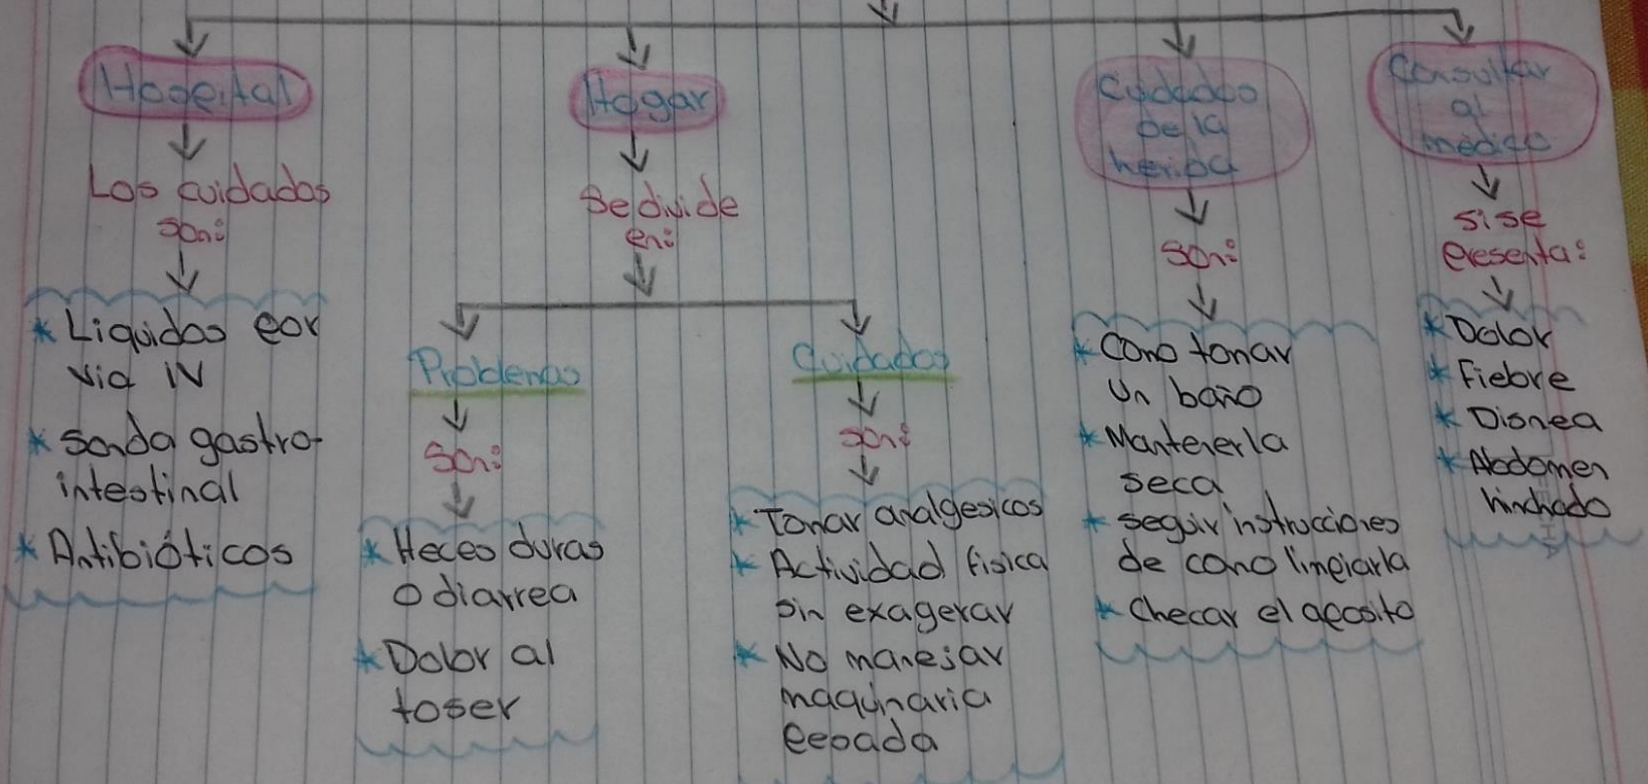 Hospital
Los cuidados
son:
* Liquidos por
via IV
* Sonda gastro-
intestinal
* Antibióticos
Hogar
Se divide
en:
Problemas
son:
* Heces duras
o diarrea
* Dolor al
toser
Cuidados
son:
* Tomar analgesicos
* Actividad fisica
sin exagerar
* No manejar
maquinaria
pesada
Cuidados
de la
herida
son:
* Como tomar
un baño
* Mantenerla
seca
* seguir instrucciones
de como limpiarla
* Checar el aposito
Consultar
al
médico
si se
presenta:
* Dolor
* Fiebre
* Disnea
* Abdomen
hinchado